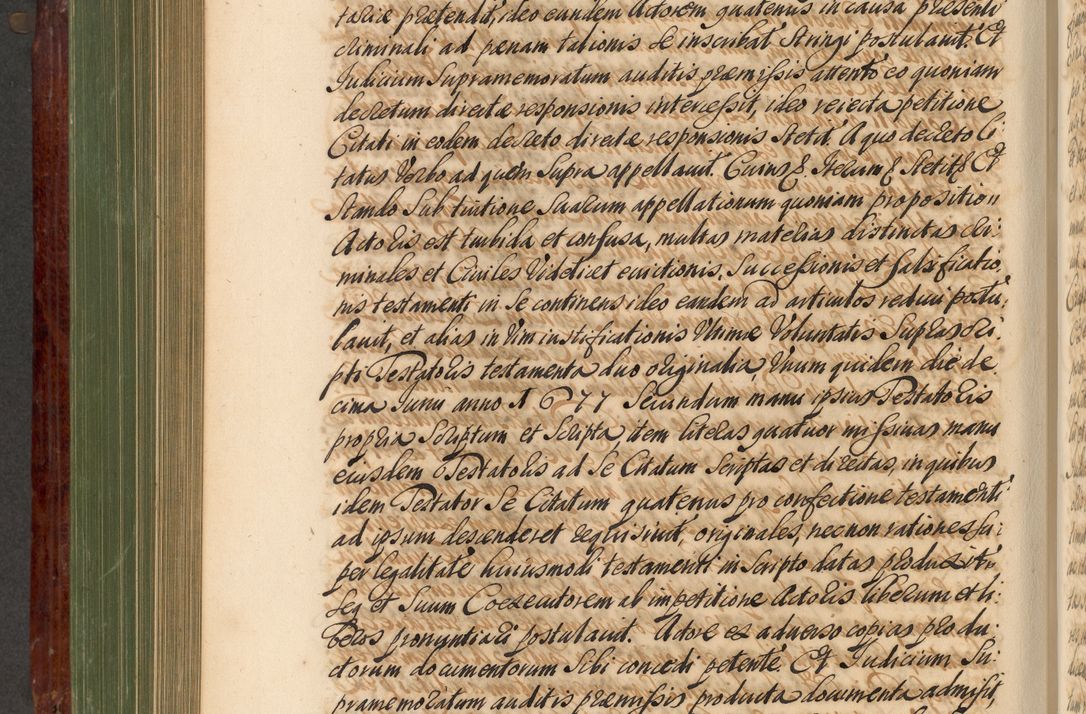 tariæ prætendit, ideo eundem Actorem quatenus in causa præsenti
criminali ad pænam talionis se inscribat stringi postulavit. Et
Judicium Supramemoratum auditis præmissis attento eo quoniam
decretum directæ responsionis intercessit, ideo reiecta petitione
Citati in eodem decreto directæ responsionis stetit. A quo decreto Ci-
tatus Verbo ad quem supra appellavit. Cuius &. Iterum & stetit & Et
Stando Sub tuitione Suarum appellationum quoniam proposition
Actoris est turbida et confusa, multas materias distinctas cri-
minales et Civiles Videlicet evictionis, Successionis et falsificatio-
nis testamenti in se continens ideo eandem ad articulos reduci postu-
lavit, et alias in Vim iustificationis Ultimæ Voluntatis Suprascri-
pti Testatoris testamenta duo originalia, Unum quidem die de-
cima Junii anno 1677 Secundum manu ipsius Testatoris
propria Scriptum et Scripta, item literas quatuor missivas manu
eiusdem Testatoris ad Se Citatum Scriptas et directas, in quibus
idem Testator Se Citatum quatenus pro confectione testamenti
ad ipsum descenderet requisivit, originales, necnon rationes Su-
per legalitate huiusmodi testamenti in Scripto datas produxit,
Seq et Suum Coexecutorem ab impetitione Actoris liberum et li-
beros pronuntiari postulavit. Actore ex adverso copias produ-
ctorum documentorum Sibi concedi petente. Et Judicium Su-
pramemoratum auditis præmissis producta documenta admisit,